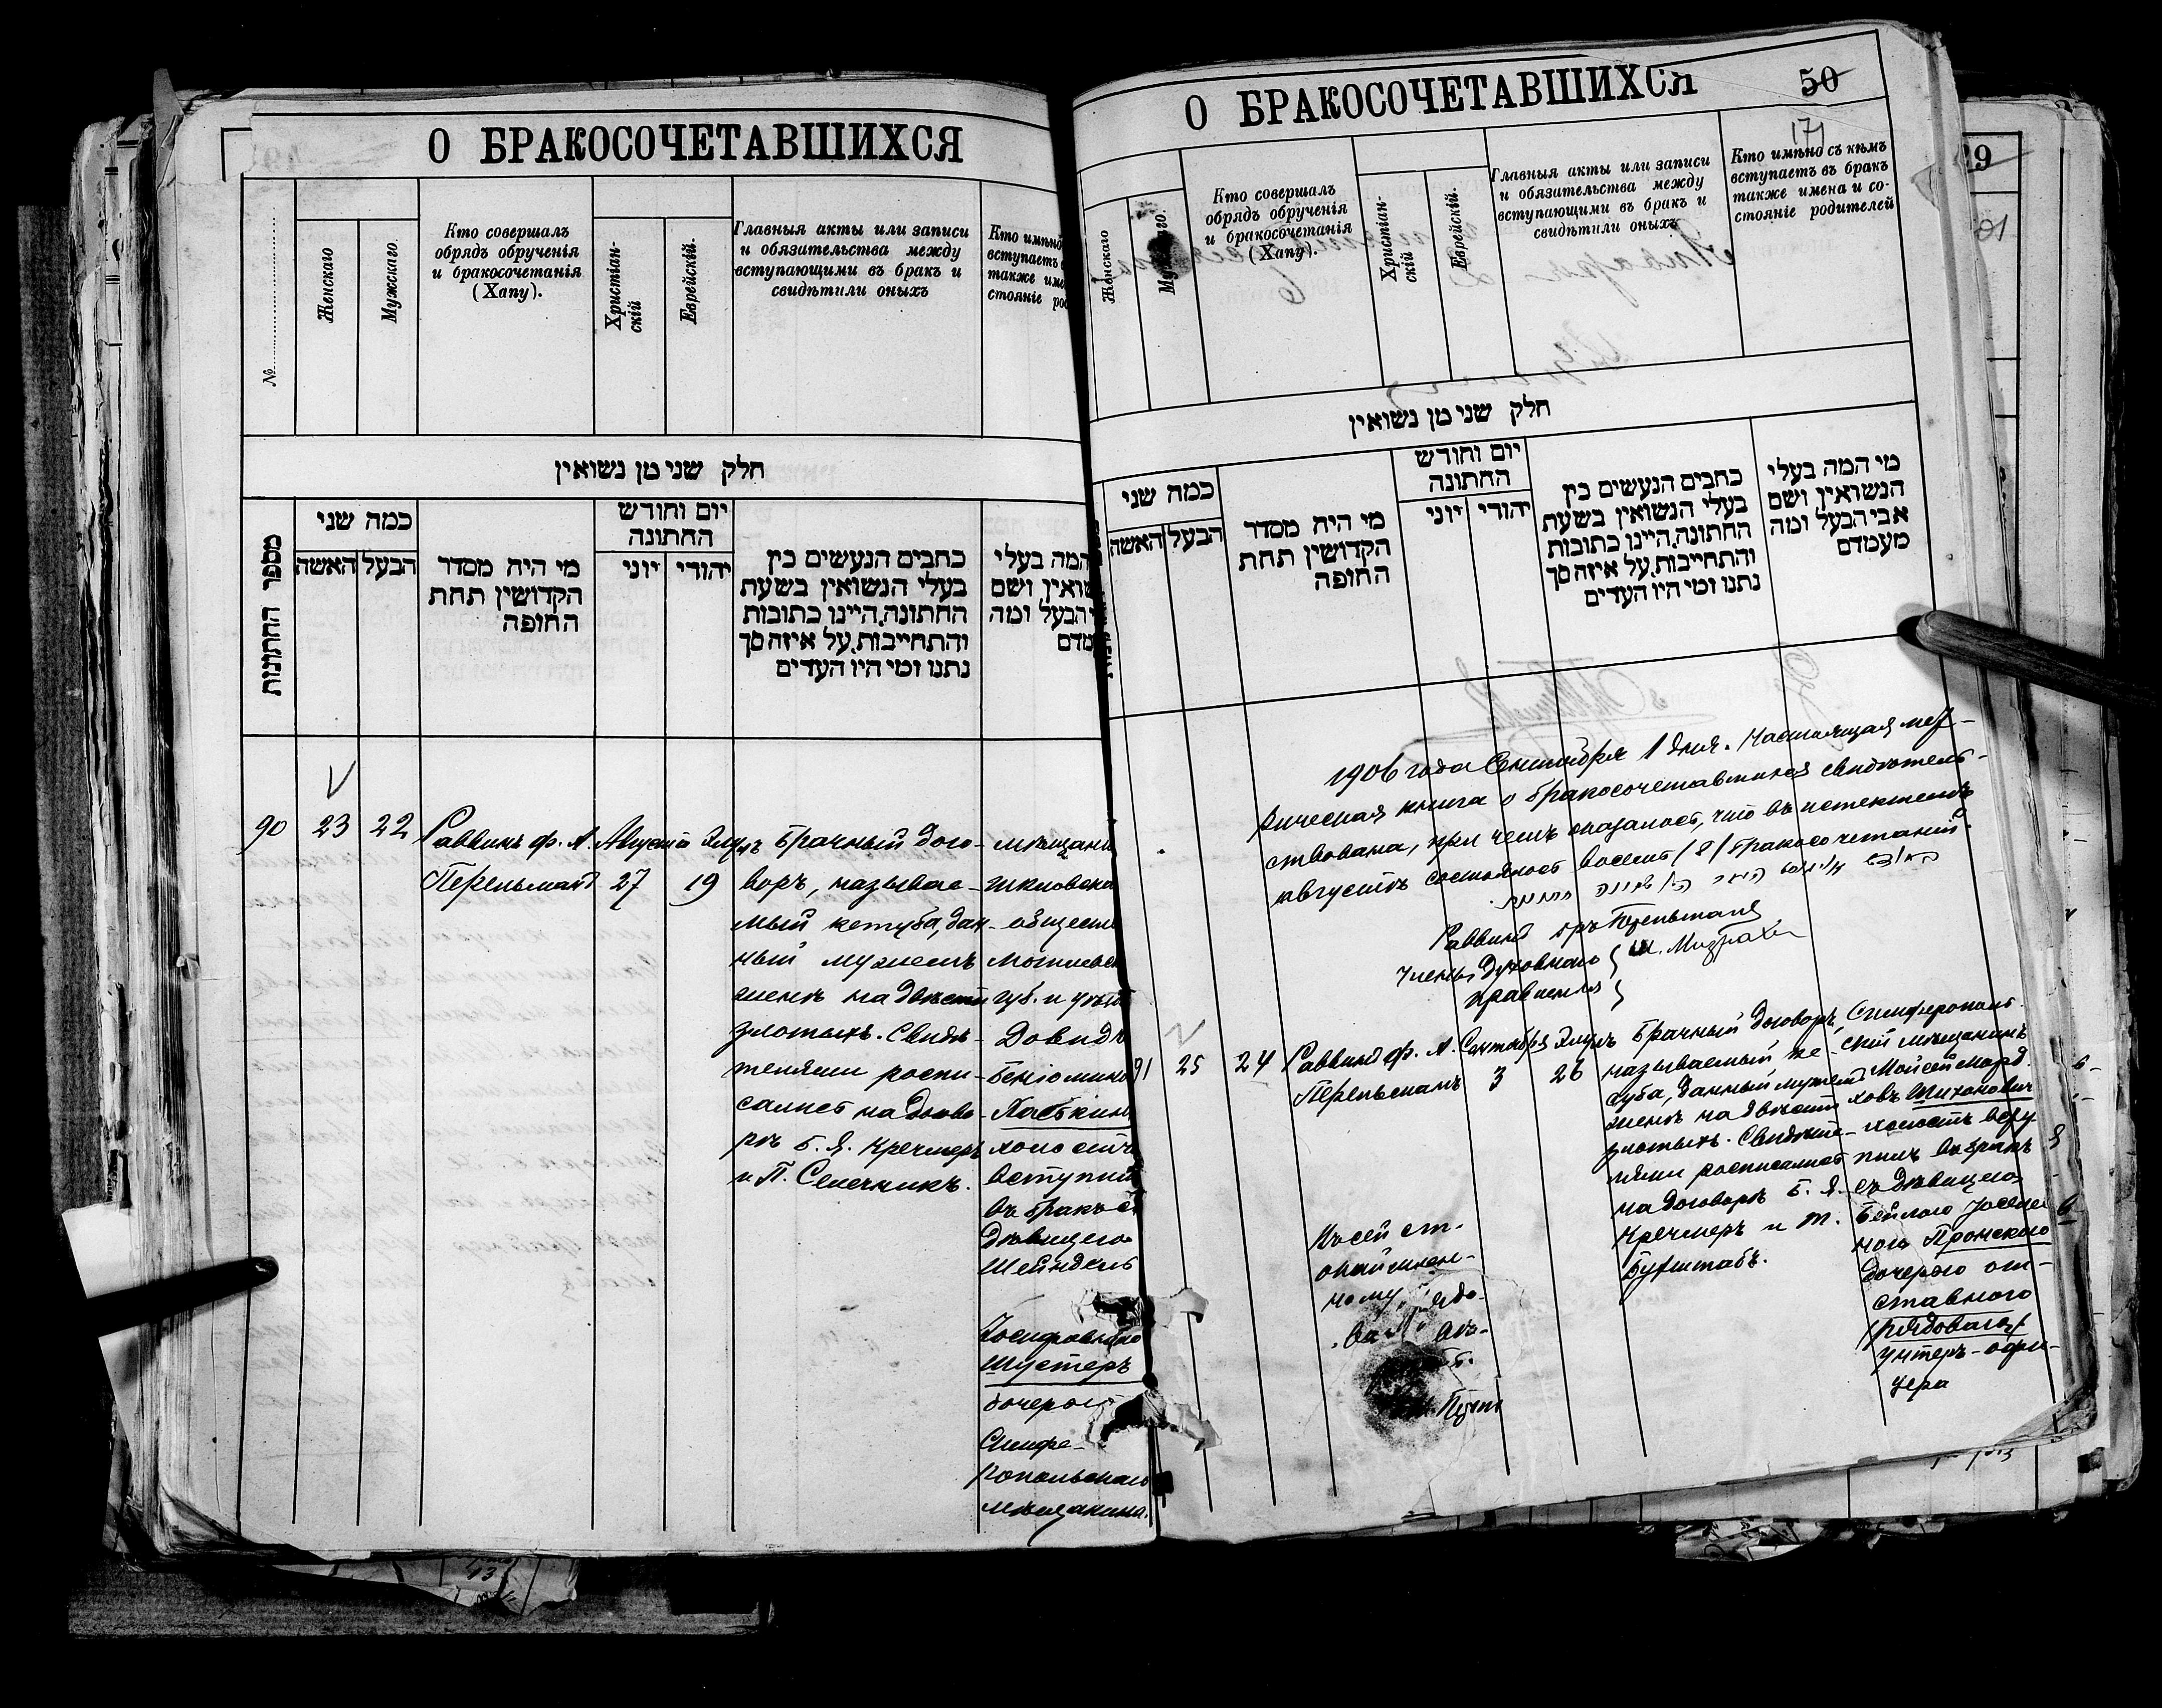 О БРАКОСОЧЕТАВШИХСЯ
№
Женскаго
Мужскаго.
Кто совершалъ
обрядъ обрученія
и бракосочетанія
(Хапу).
Христіан-
скій
Еврейскій.
Главныя акты или записи
и обязательства между
вступающими въ бракъ и
свидѣтили оныхъ
Кто имѣнно
вступаетъ
также име
стояніе ро
חלק שני מן נשואין
מספר החתונות
כמה שני
האשה
הבעל
מי היה מסדר
הקדושין תחת
החופה
יום וחודש
החתונה
יוני
יהודי
כתבים הנעשים בין
בעלי הנשואין בשעת
החתונה.היינו כתובות
והתחייבות.על איזה סך
נתנו ומי היו העדים
המה בעלי
שואין ושם
הבעל ומה
מדם
90
23
22
Раввинъ ф. А.
Перельманъ
Августа
27
Элулъ
19
Брачный дого-
воръ, называе-
мый кетуба, дан-
ный мужемъ
женѣ на двѣсти
злотыхъ. Свидѣ-
телями роспи-
сались на догово-
рѣ Б. Я. Кречмеръ
и П. Семечникъ.
мѣщани
Шкловска
обществ
Могилевск
губ. и уѣзд
Довидъ
Беніомино
холостъ
вступил
въ бракъ съ
дѣвицею
Шейндель
Іосифовною
Шустеръ
дочерью
Симфе-
ропольскаго
мѣщанина.
О БРАКОСОЧЕТАВШИХСЯ
50
171
Женскаго
Кто совершалъ
обрядъ обрученія
и бракосочетанія
(Хапу).
Христіан-
скій
Еврейскій.
Главныя акты или записи
и обязательства между
вступающими въ бракъ и
свидѣтили оныхъ
Кто имѣнно съ кѣмъ
вступаетъ въ бракъ
также имена и со-
стояніе родителей
חלק שני מן נשואין
כמה שני
האשה
הבעל
מי היה מסדר
הקדושין תחת
החופה
יום וחודש
החתונה
יוני
יהודי
כתבים הנעשים בין
בעלי הנשואין בשעת
החתונה.היינו כתובות
והתחייבות.על איזה סך
נתנו ומי היו העדים
מי המה בעלי
הנשואין ושם
אבי הבעל ומה
מעמדם
1906 года Сентября 1 дня. Настоящая мет-
рическая книга о бракосочетавшихся свидѣтель-
ствована, при чемъ оказалось, что въ истекшемъ
августѣ состоялось восемь (8) бракосочетаній.
Раввинъ Перельманъ
Члены Духовнаго
Правленія
Ш. Мизрахи
91
25
24
Раввинъ ф. А.
Перельманъ
Сентября
3
Элулъ
26
Брачный договоръ,
называемый ке-
туба, данный мужемъ
женѣ на двѣсти
злотыхъ. Свидѣте-
лями росписались
на договорѣ Б. Я.
Кречмеръ и М.
Бухштабъ.
Симферополь-
скій мѣщанинъ
Мойсей Морд-
ховъ
холостъ всту-
пилъ въ бракъ
съ дѣвицею
Бейлою Іоселе-
ною Пронскою
дочерью от-
ставного
(рядового)
унтеръ-офи-
цера
Къ сей ст.
29